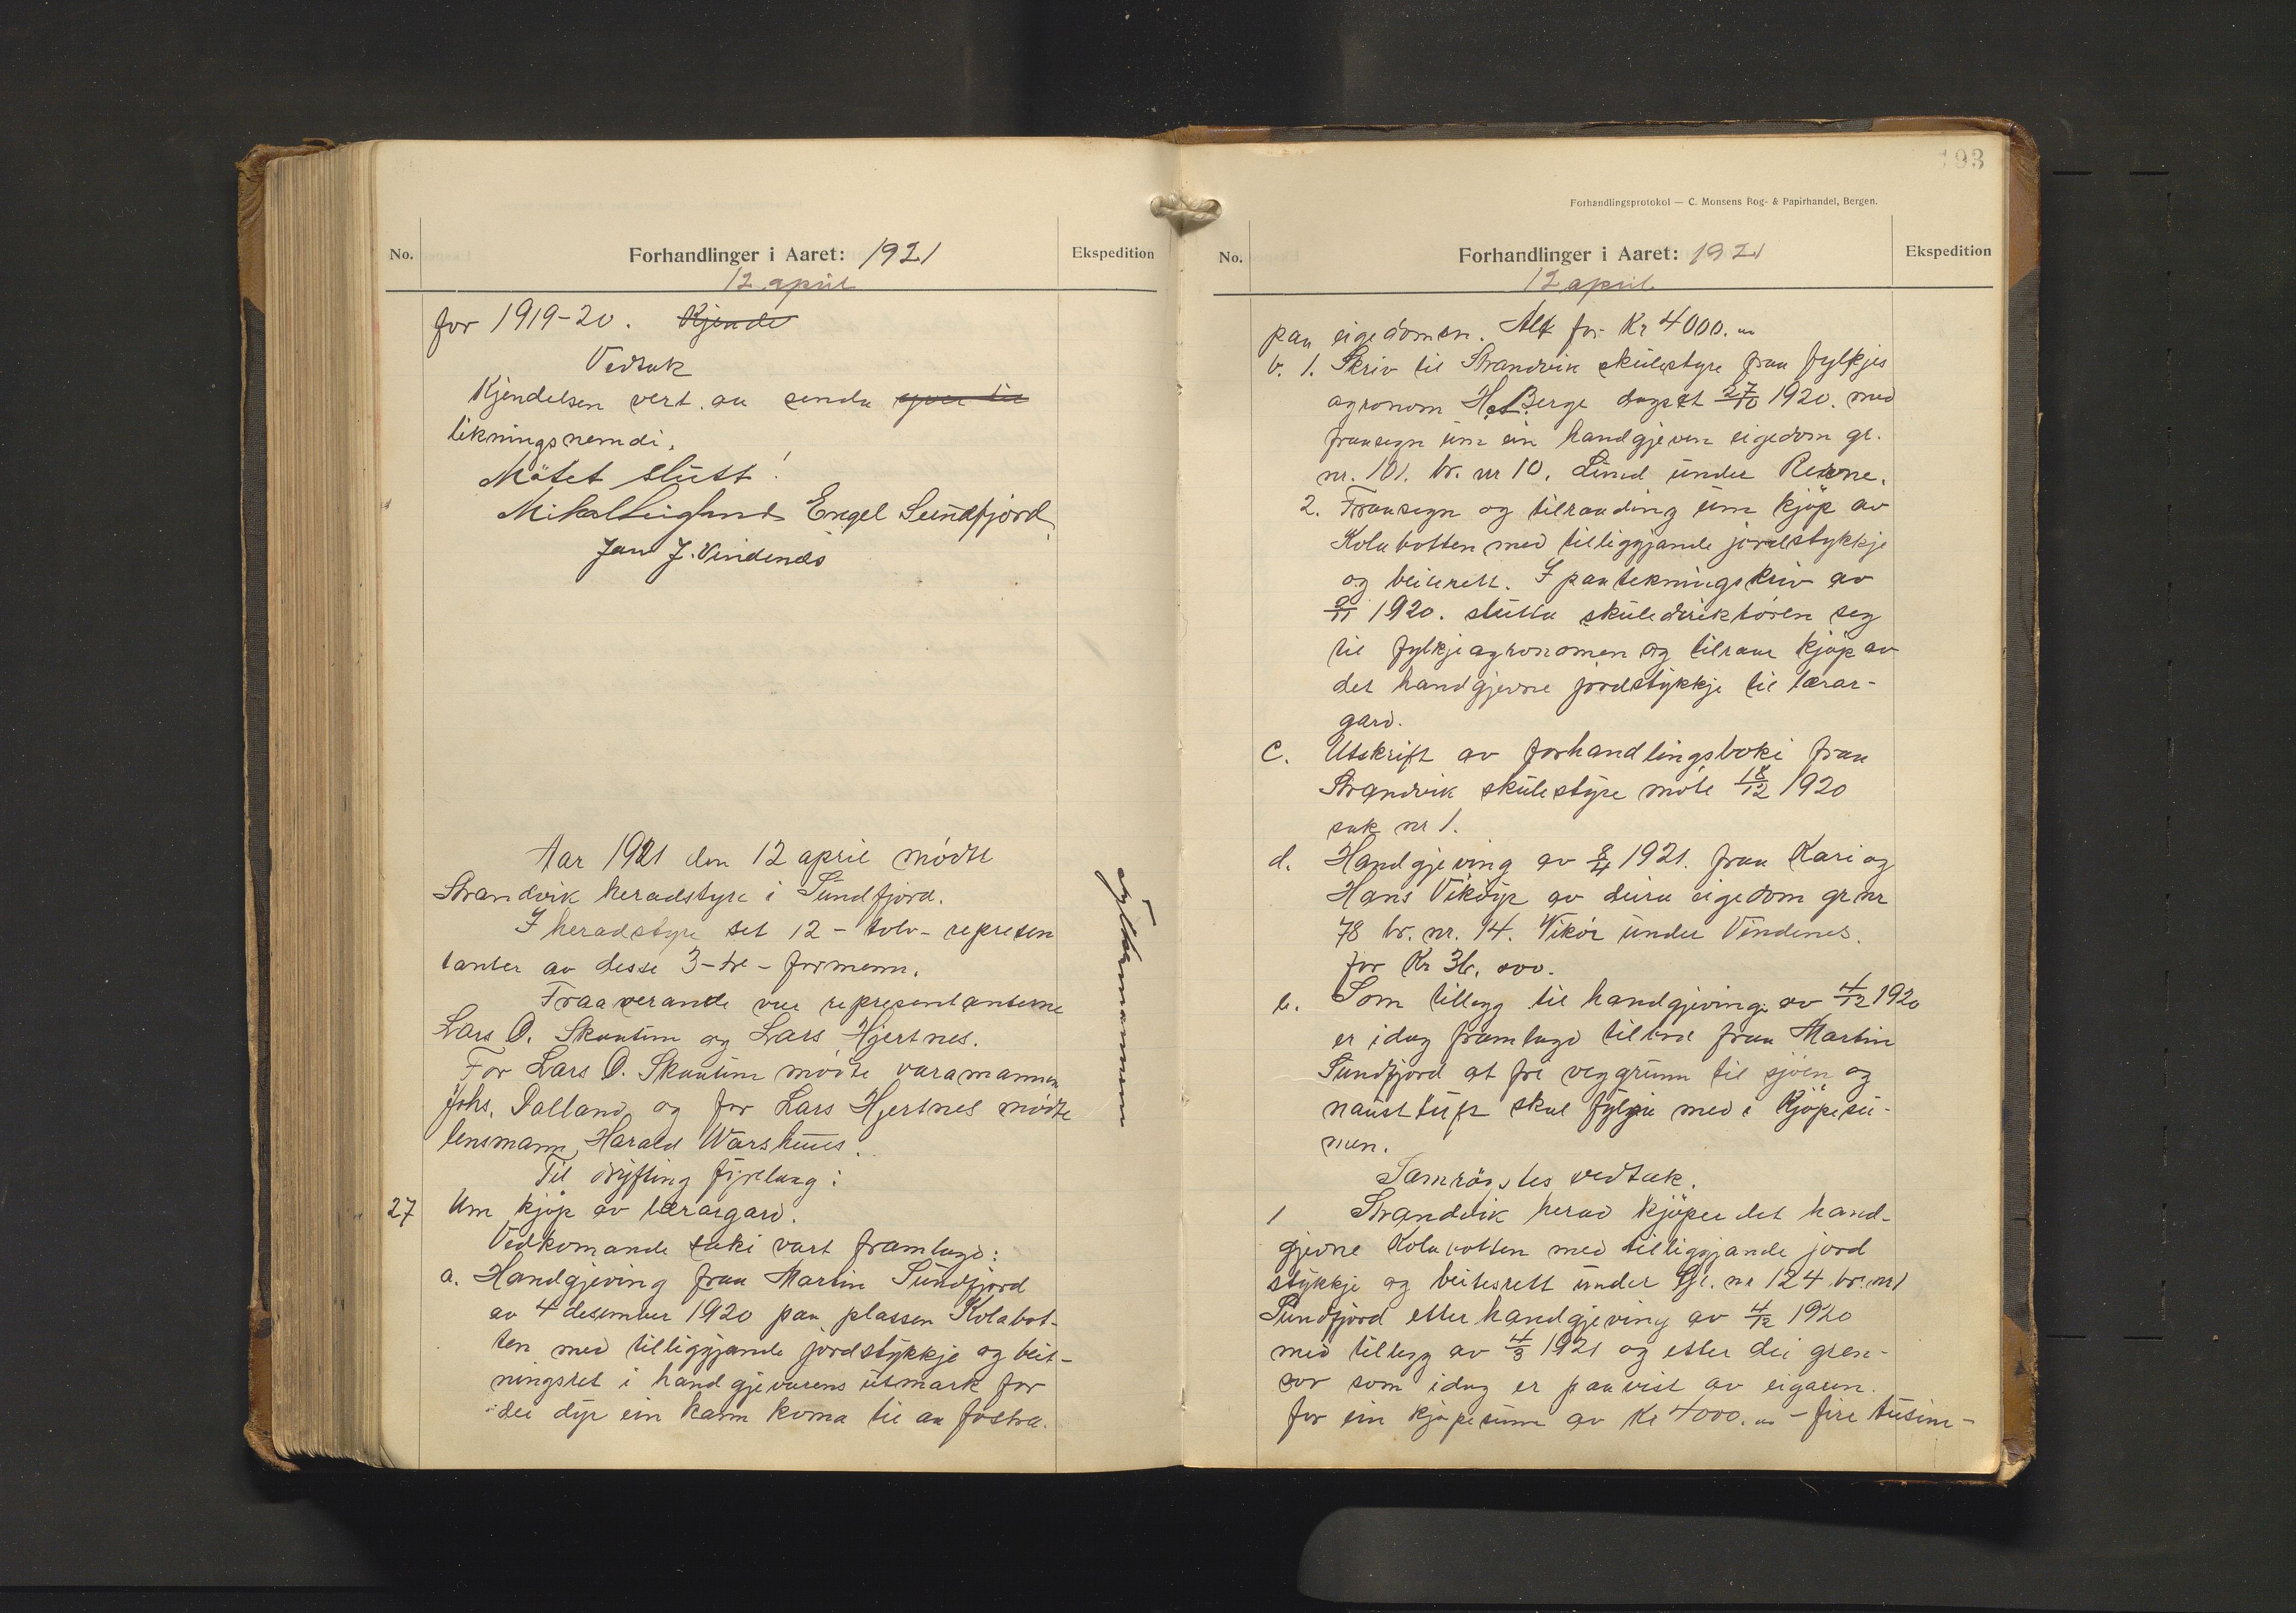 No.
Forhandlinger i Aaret: 1921
12 april
Ekspedition
for 1919-20. Kjende
Vedtak
Kjendelsen vert aa senda yver til
likningsnemdi.
Mötet slutt!
Engel Sundfjord
Jan J. Vindenes
Aar 1921 den 12 april mödte
Strandvik heradstyre i Sundfjord.
I heradstyre set 12 - tolv - represen
tanter av desse 3 - tre - formenn.
Fraaverande var representanterne
Lars O. Skaatun og Lars Hjertnes.
For Lars O. Skaatun mödte varamannen
Johs. Dalland og for Lars Hjertnes mödte
lensmann Harald Warshuus.
Til dryfting fyrelaag:
27 Um kjöp av lærargard.
Vedkomande saki vart framlagd:
a. Handgjeving fraa Martin Sundfjord
av 4 desember 1920 paa plassen Kolabot-
ten med tilliggjande jordstykkje og beit-
ningsret i handgjevarens utmark for
dei dyr ein kann koma til aa fostra.
Fylkesmannen
193
Forhandlingsprotokol — C. Monsens Bog- & Papirhandel, Bergen.
No.
Forhandlinger i Aaret: 1921
12 april
Ekspedition
paa eigedomen. Alt for Kr 4000.00
b. 1. Skriv til Strandvik skulestyre fraa fylkjes
agronom H. Berge dagset 27/10 1920. med
fraasegn um ein handgjeven eigedom gr.
nr. 101. br. nr 10. Lund under Revne.
2. Fraasegn og tilraading um kjöp av
Kolabotten med tilliggjande jordstykkje
og beiterett. I paatekningskriv av
1920. slutta skuledirektören seg
til fylkjeagronomen og tilraar kjöp av
det handgjevne jordstykkje til lærar-
gard.
c. Utskrift av forhandlingsboki fraa
Strandvik skulestyre möte 18/12 1920
sak nr 1.
d. Handgjeving av 8/4 1921. fraa Kari og
Hans Viköyr av deira eigedom gr nr
78 br. nr. 14. Vikör under Vindenes.
for Kr 36.000.
e. Som tillegg til handgjeving av 4/12 1920
er idag framlagd tilbod fraa Martin
Sundfjord at fri veggrunn til sjöen og
nausttuft skal fylgja med i kjöpesu-
men.
Samröystes vedtak.
1 Strandvik herad kjöper det hand-
gjevne Kolabotten med tilliggjande jord
stykkje og beitesrett under Gr. nr 124 br. nr 1
Sundfjord etter handgjeving av 4/12 1920
med tillegg av 4/3 1921 og etter dei gren-
sor som idag er paavist av eigaren.
for ein kjöpesum av Kr 4000.00 - fire tusun -